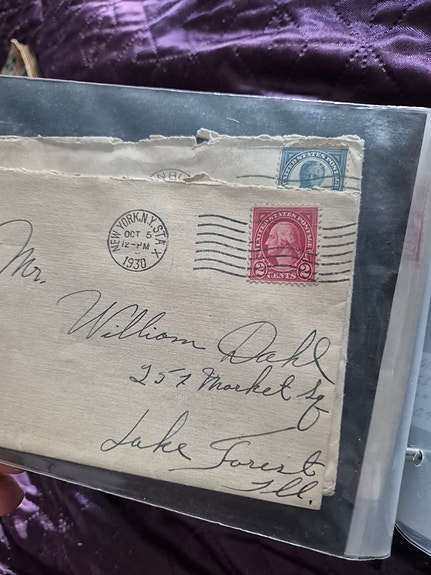 UNITED STATES POSTAGE
NEW YORK, N.Y. STA. X
OCT 5
12-PM
1930
UNITED STATES POSTAGE
2 CENTS 2
Mr.
William Dahl
257 Market Sq
Lake Forest
Ill.